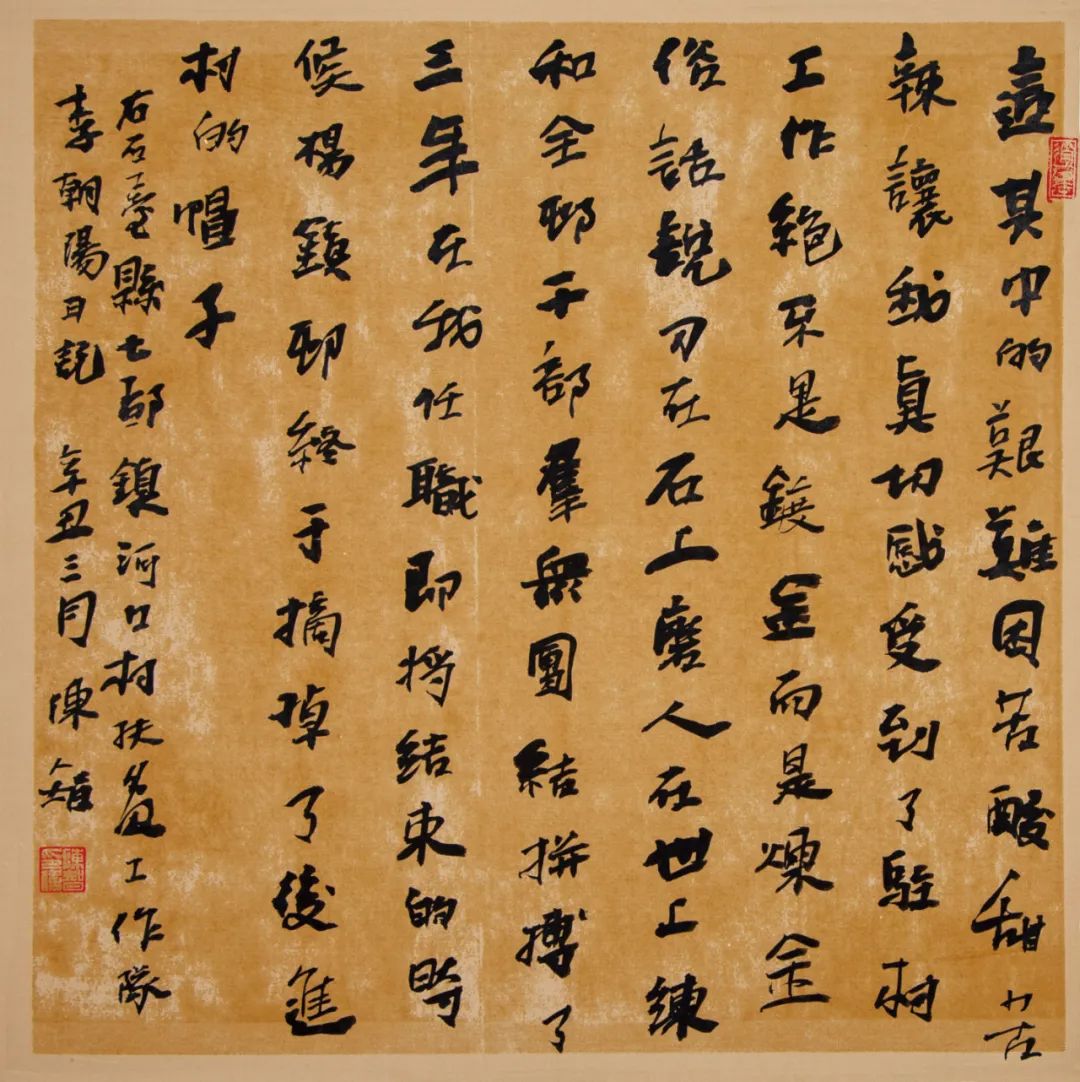 這其中的艱難困苦酸甜苦
辣讓我真切感受到了駐村
工作絕不是鍍金而是煉金
俗話説刀在石上磨人在世上練
和全邨干部羣衆團結拼搏了
三年在我任職即將結束的時
候楊鎮邨終于摘掉了後進
村的帽子
右石臺縣七都鎮河口村扶貧工作隊
李朝陽日記 辛丑三月 陳